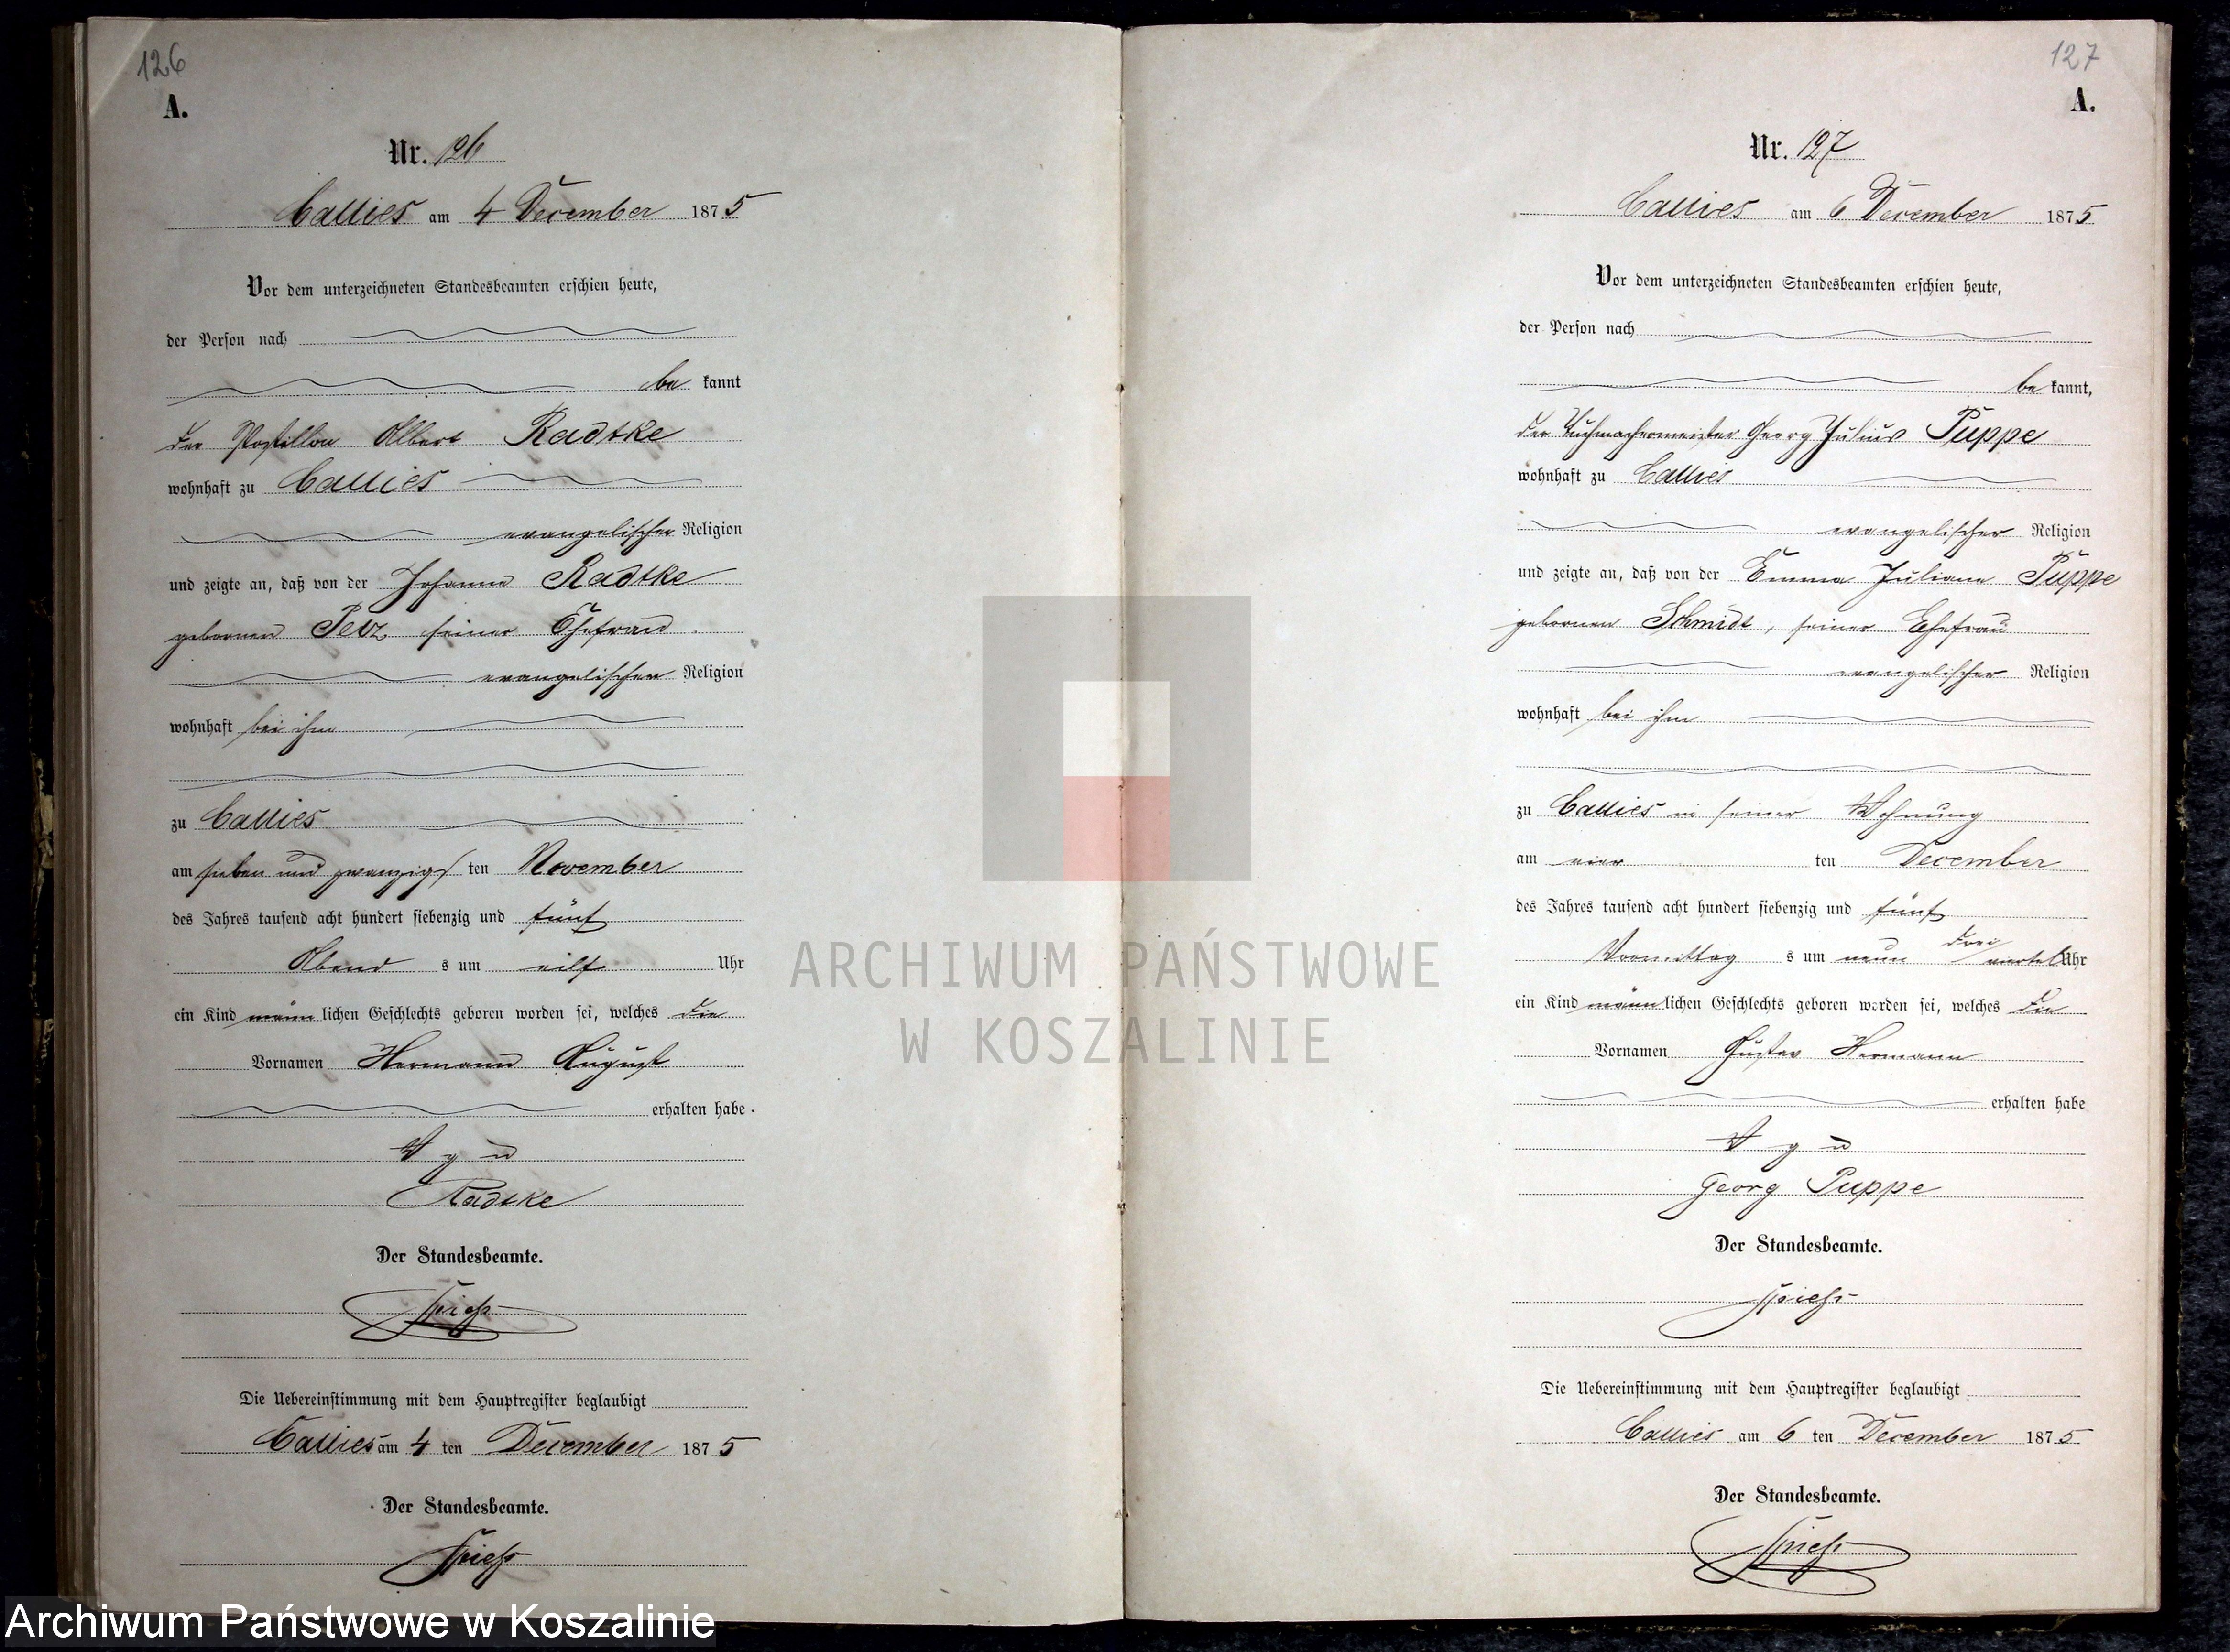 126
A.
Nr. 126
Callies am 4 December 1875
Vor dem unterzeichneten Standesbeamten erschien heute,
der Person nach
be kannt
der Postillon Albert Radtke
wohnhaft zu Callies
evangelischer Religion
und zeigte an, daß von der Johanne Radtke
geborenen seiner Ehefrau
evangelischer Religion
wohnhaft bei ihm
zu Callies
am sieben und zwanzigs ten November
des Jahres tausend acht hundert siebenzig und fünf
Abend s um eilf Uhr
ein Kind männ lichen Geschlechts geboren worden sei, welches die
Vornamen Hermann August
erhalten habe.
V g u
Radtke
Der Standesbeamte.
Spieß
Die Uebereinstimmung mit dem Hauptregister beglaubigt
Callies am 4 ten December 1875
Der Standesbeamte.
Spieß
127
A.
Nr. 127
Callies am 6 December 1875
Vor dem unterzeichneten Standesbeamten erschien heute,
der Person nach
be kannt,
der Tuchmachermeister Georg Julius Puppe
wohnhaft zu Callies
evangelischer Religion
und zeigte an, daß von der Emma Juliane Puppe
gebornen Schmidt, seiner Ehefrau
evangelischer Religion
wohnhaft bei ihm
zu Callies in seiner Wohnung
am vier ten December
des Jahres tausend acht hundert siebenzig und fünf
Vormittag s um neun drei viertel Uhr
ein Kind männ lichen Geschlechts geboren worden sei, welches die
Vornamen Gustav Hermann
erhalten habe
V g u
Georg Puppe
Der Standesbeamte.
Spieß
Die Uebereinstimmung mit dem Hauptregister beglaubigt
Callies am 6 ten December 1875
Der Standesbeamte.
Spieß
ARCHIWUM PAŃSTWOWE
W KOSZALINIE
Archiwum Państwowe w Koszalinie